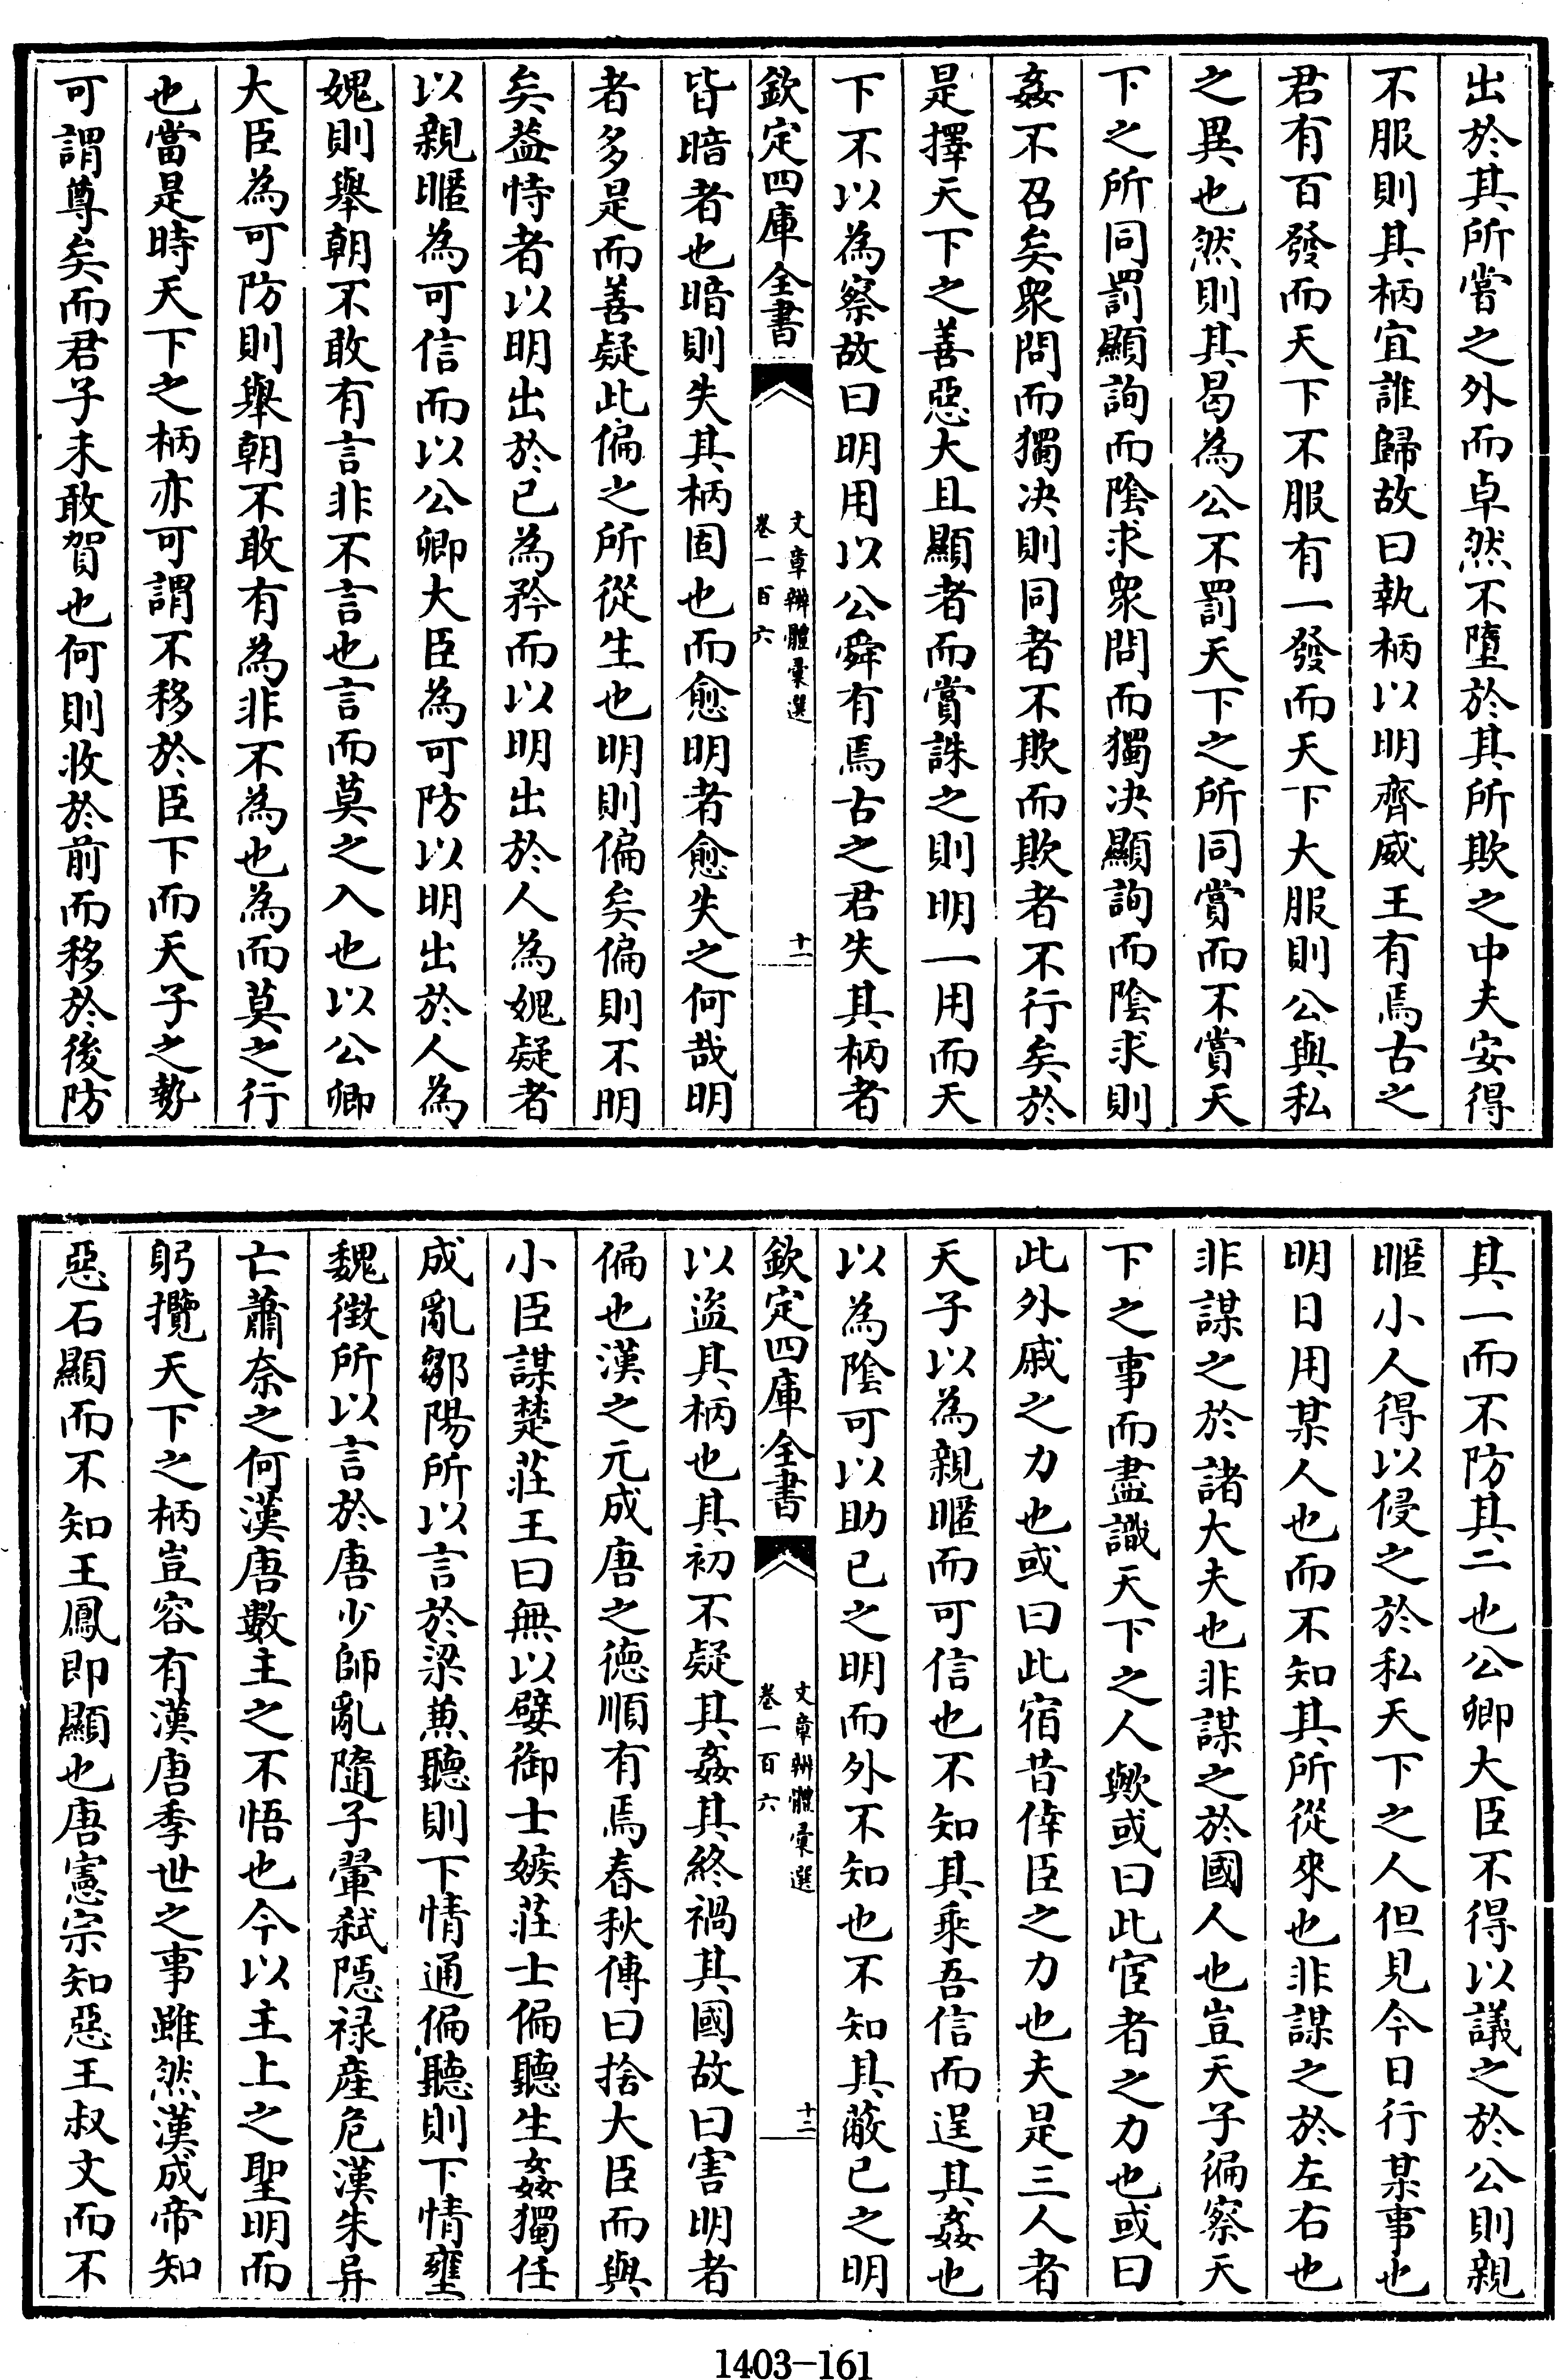 出於其所嘗之外而卓然不墮於其所欺之中夫安得
不服則其柄宜誰歸故曰執柄以明齊威王有焉古之
君有百發而天下不服有一發而天下大服則公與私
之異也然則其曷為公不罰天下之所同賞而不賞天
下之所同罰顯詢而陰求衆問而獨决顯詢而陰求則
姦不召矣衆問而獨决則同者不欺而欺者不行矣於
是擇天下之善惡大且顯者而賞誅之則明一用而天
下不以為察故曰明用以公舜有焉古之君失其柄者
欽定四庫全書
文章辨體彙選
卷一百六
十一
皆暗者也暗則失其柄固也而愈明者愈失之何哉明
者多是而善疑此偏之所從生也明則偏矣偏則不明
矣葢恃者以明出於已為矜而以明出於人為媿疑者
以親暱為可信而以公卿大臣為可防以明出於人為
媿則舉朝不敢有言非不言也言而莫之入也以公卿
大臣為可防則舉朝不敢有為非不為也為而莫之行
也當是時天下之柄亦可謂不移於臣下而天子之勢
可謂尊矣而君子未敢賀也何則收於前而移於後防
其一而不防其二也公卿大臣不得以議之於公則親
暱小人得以侵之於私天下之人但見今日行某事也
明日用某人也而不知其所從來也非謀之於左右也
非謀之於諸大夫也非謀之於國人也豈天子徧察天
下之事而盡識天下之人歟或曰此宦者之力也或曰
此外戚之力也或曰此宿昔倖臣之力也夫是三人者
天子以為親暱而可信也不知其乘吾信而逞其姦也
以為陰可以助已之明而外不知也不知其蔽已之明
欽定四庫全書
文章辨體彙選
卷一百六
十二
以盜其柄也其初不疑其姦其終禍其國故曰害明者
偏也漢之元成唐之徳順有焉春秋傳曰捨大臣而與
小臣謀楚莊王曰無以嬖御士嫉莊士偏聽生姦獨任
成亂鄒陽所以言於梁兼聽則下情通偏聽則下情壅
魏徴所以言於唐少師亂隨子翬弑隠禄産危漢朱异
亡蕭奈之何漢唐數主之不悟也今以主上之聖明而
躬攬天下之柄豈容有漢唐季世之事雖然漢成帝知
惡石顯而不知王鳳即顯也唐憲宗知惡王叔文而不
1403-161